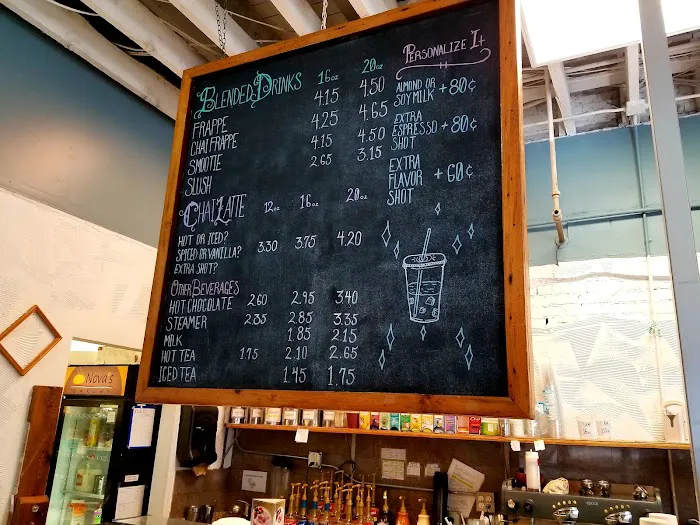 Blended Drinks 16oz 20oz
Frappe 4.15 4.50
Chai Frappe 4.25 4.65
Smootie 4.15 4.50
Slush 2.65 3.15
Personalize It
Almond or
Soy Milk +80¢
Extra
Espresso +80¢
Shot
Extra
Flavor +60¢
Shot
Chai Latte 12oz 16oz 20oz
Hot or Iced?
Spiced or Vanilla? 3.30 3.75 4.20
Extra Shot?
Other Beverages
Hot Chocolate 2.60 2.95 3.40
Steamer 2.35 2.85 3.35
Milk 1.85 2.15
Hot Tea 1.75 2.10 2.65
Iced Tea 1.45 1.75
Nova's